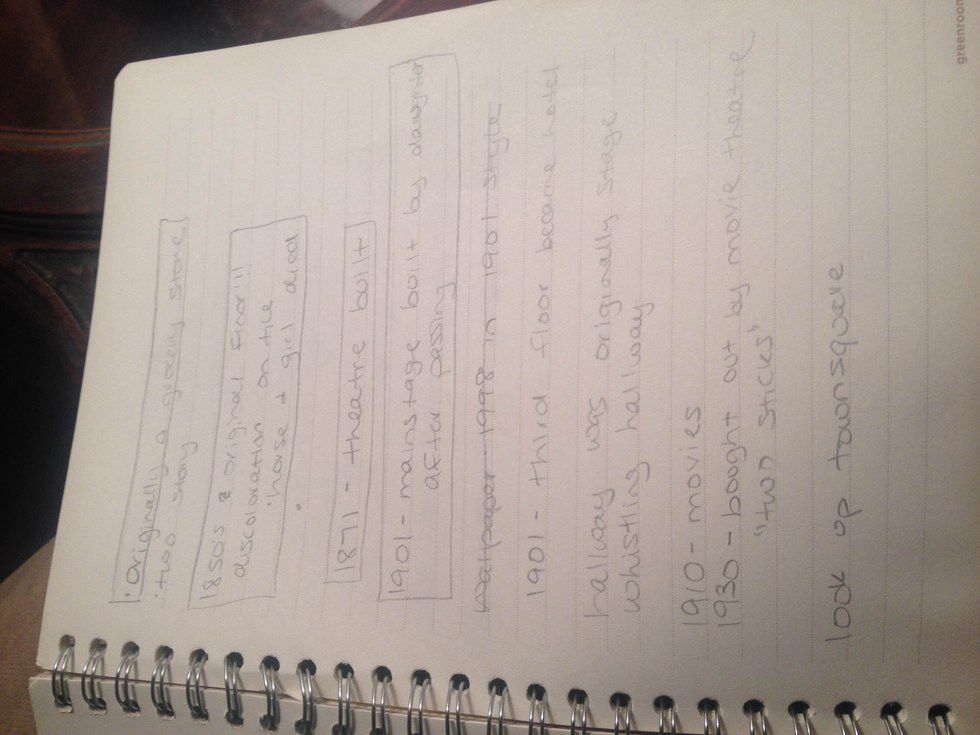 greenroom
• originally a grocery store
• two story
1850s & original floor!!!
discoloration on tile
• horse & girl died
•
1871 - theatre built
1901 - mainstage built by daughter
after passing
wallpaper 1998 in 1901 style
1901 - third floor became hotel
hallway was originally stage
whistling hallway
1910 - movies
1930 - bought out by movie theatre
"two sticks"
look up townsquare